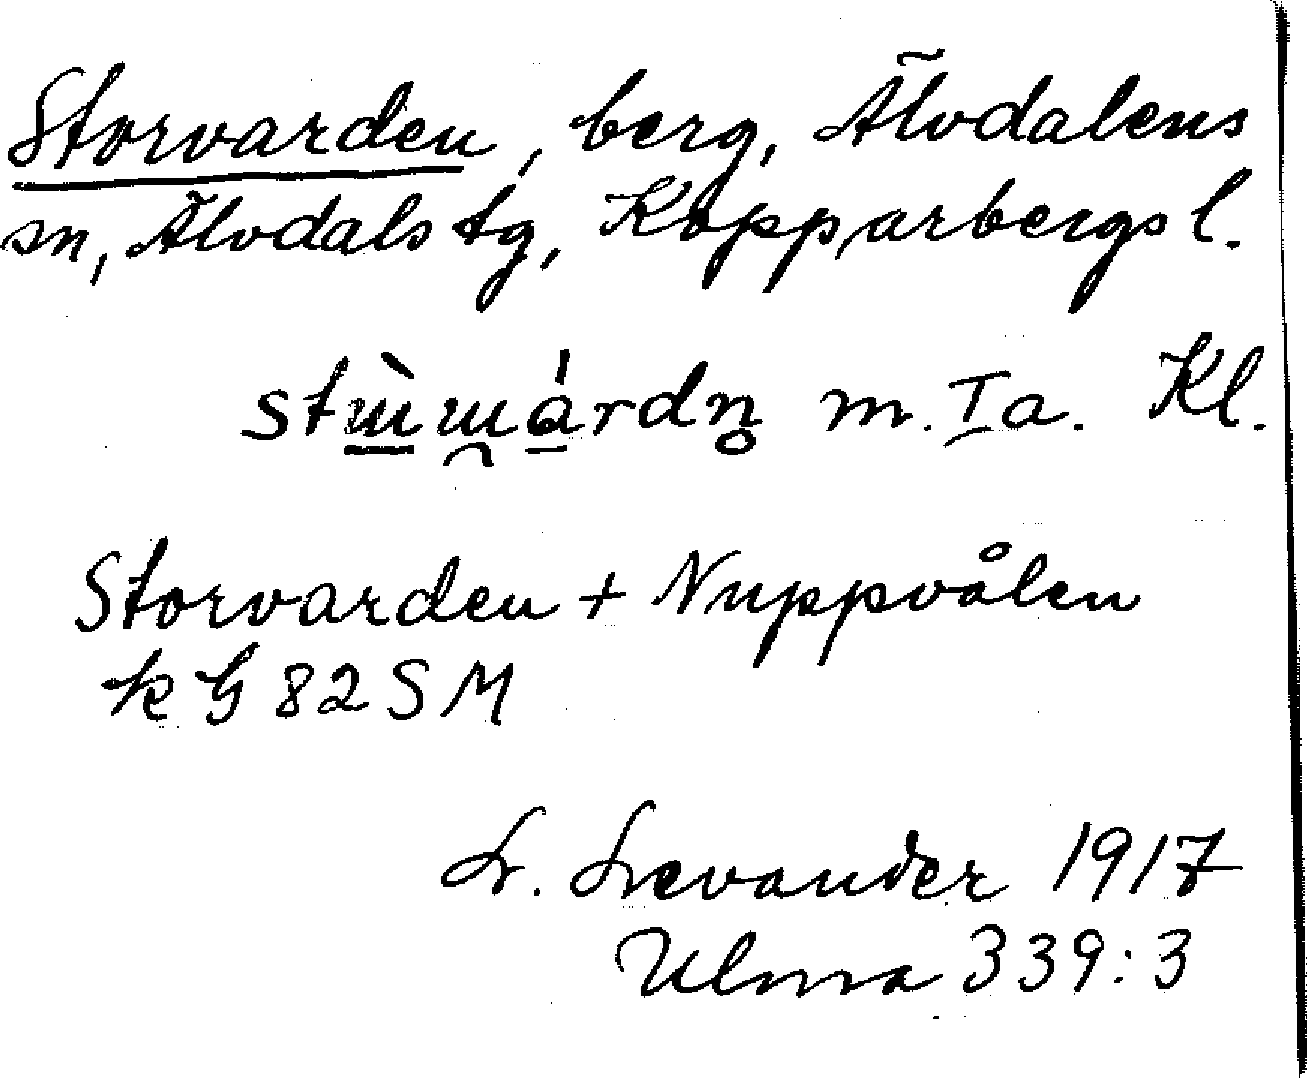 Storvarden, berg, Älvdalens
sn, Älvdals tg, Kopparbergs l.
m. Ia. Kl.
Storvarden + Nuppvålen
k G 82 S M
L. Levander 1917
Ulma 339:3